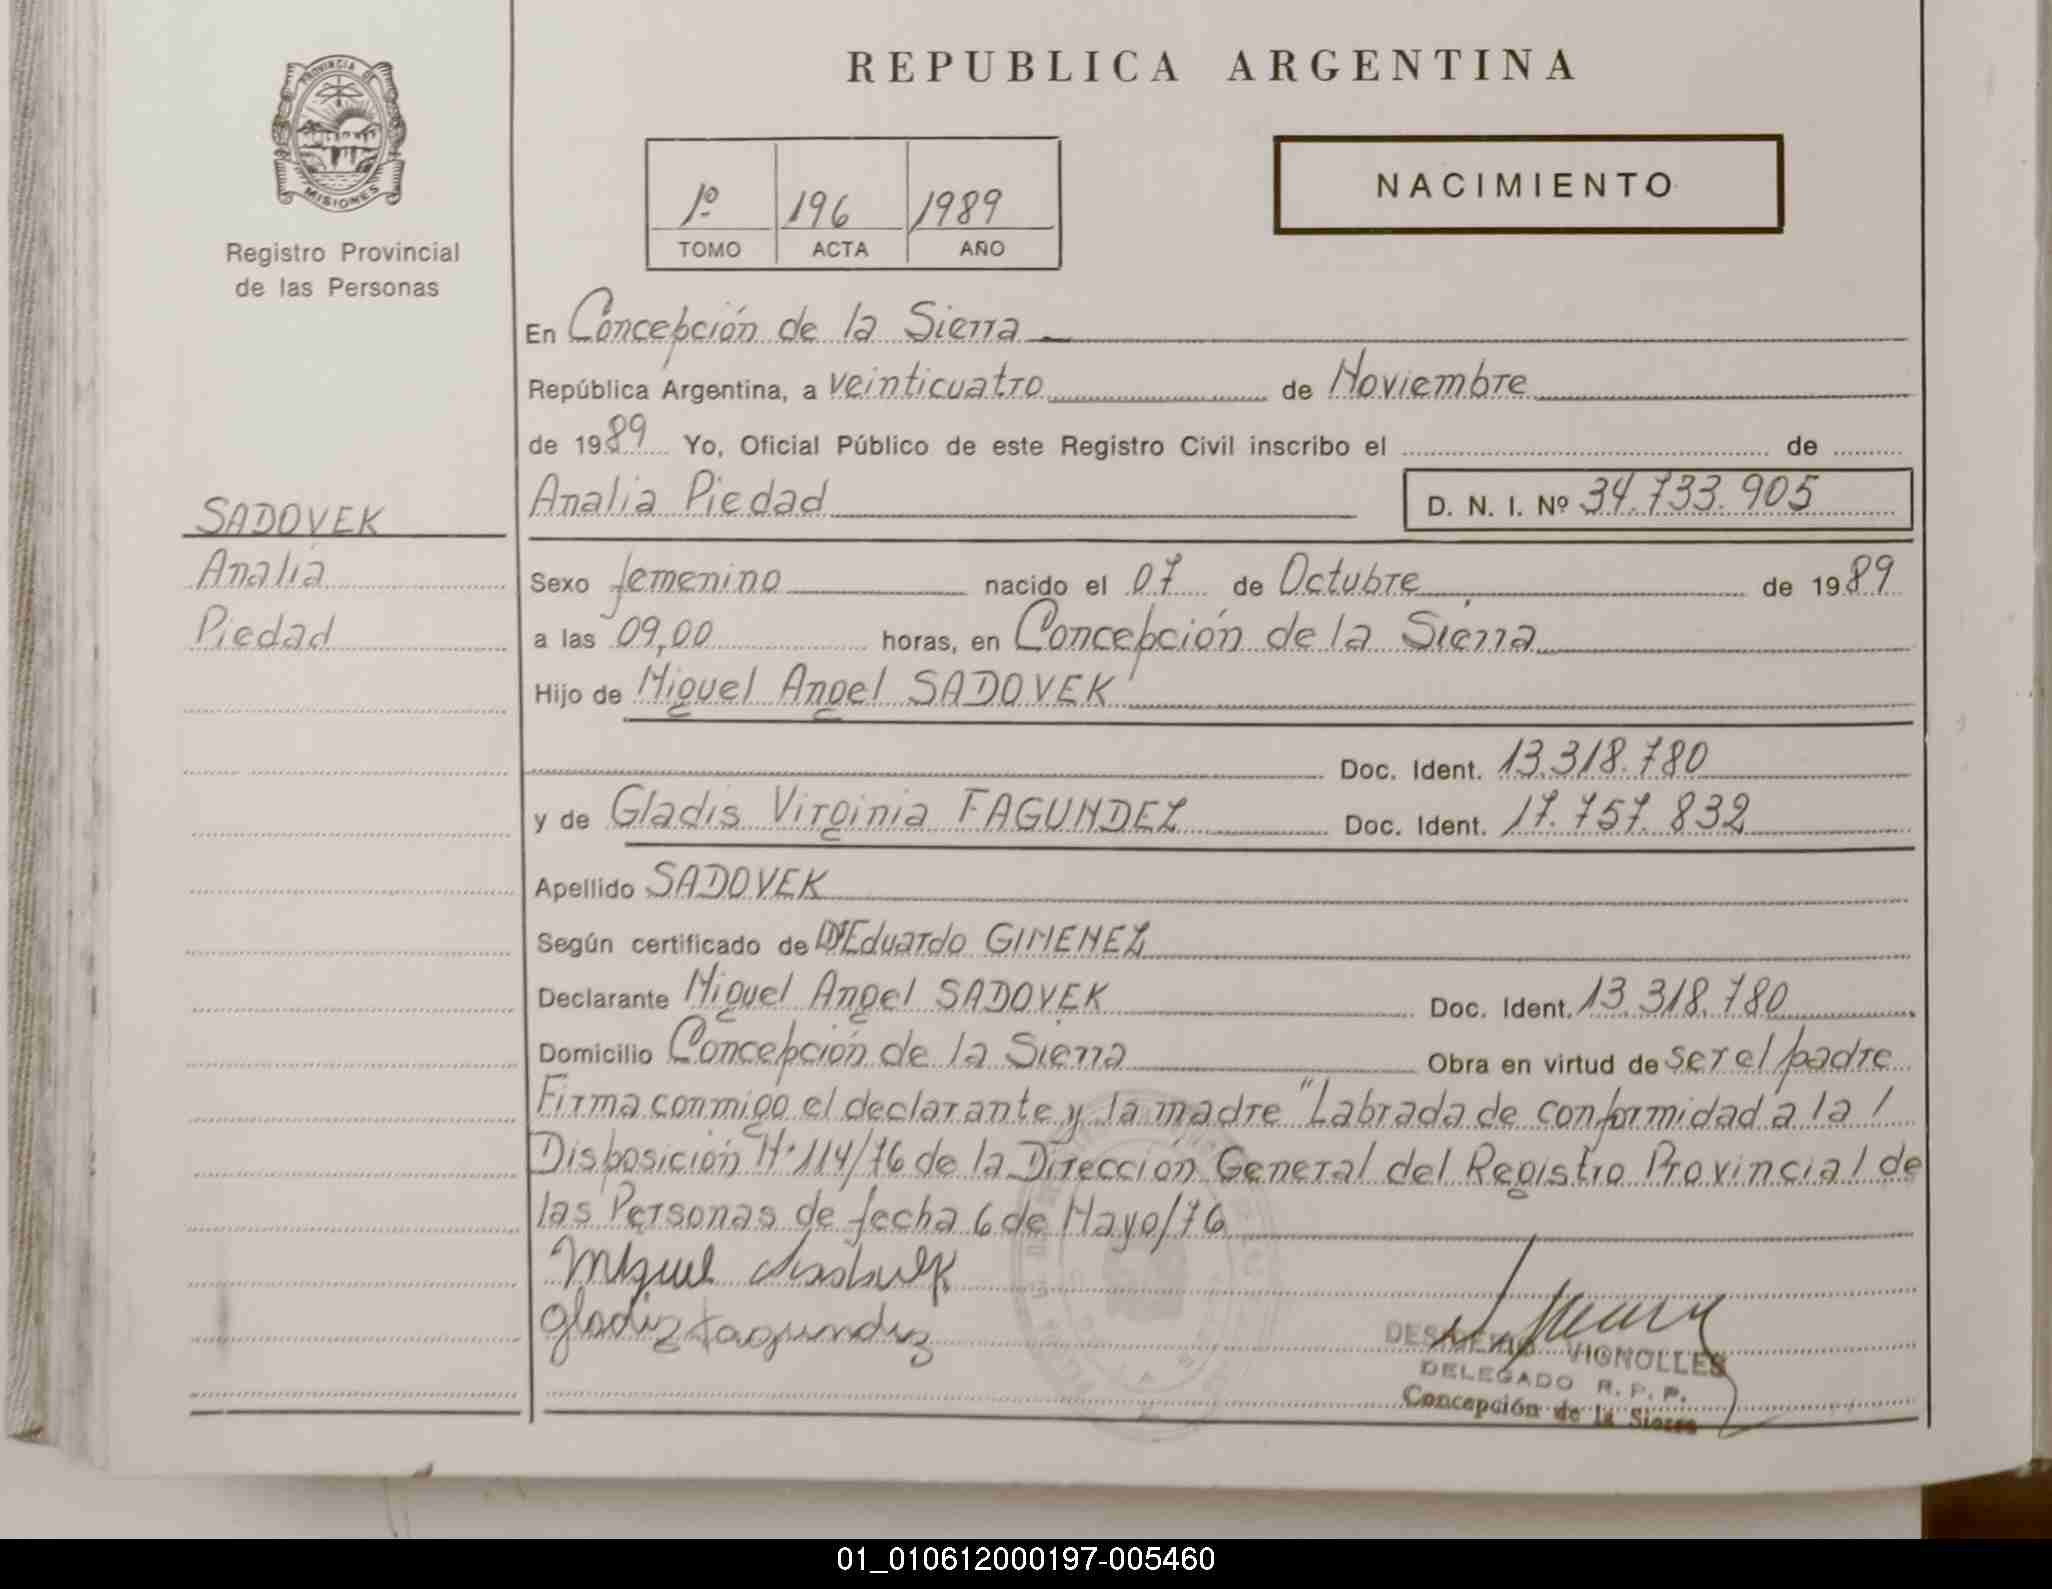 REPUBLICA ARGENTINA
PROVINCIA DE
MISIONES
Registro Provincial
de las Personas
1º 196 1989
TOMO ACTA AÑO
NACIMIENTO
En Concepción de la Sierra
República Argentina, a veinticuatro de Noviembre
de 1989 Yo, Oficial Público de este Registro Civil inscribo el de
SADOVEK
Analia
Piedad
Analia Piedad D. N. I. Nº 34.733.905
Sexo femenino nacido el 07 de Octubre de 1989
a las 09,00 horas, en Concepción de la Sierra
Hijo de Miguel Angel SADOVEK
Doc. Ident. 13.318.780
y de Gladis Virginia FAGUNDEZ Doc. Ident. 17.757.832
Apellido SADOVEK
Según certificado de Dr Eduardo GIMENEZ
Declarante Miguel Angel SADOVEK Doc. Ident. 13.318.780
Domicilio Concepción de la Sierra Obra en virtud de ser el padre
Firma conmigo el declarante y la madre "Labrada de conformidad a la /
Disposición N° 114/76 de la Dirección General del Registro Provincial de
las Personas de fecha 6 de Mayo/76
Miguel
Gladiz Fagundez
VIGNOLLES
DELEGADO R. P. P.
Concepción de la Sierra
01_010612000197-005460